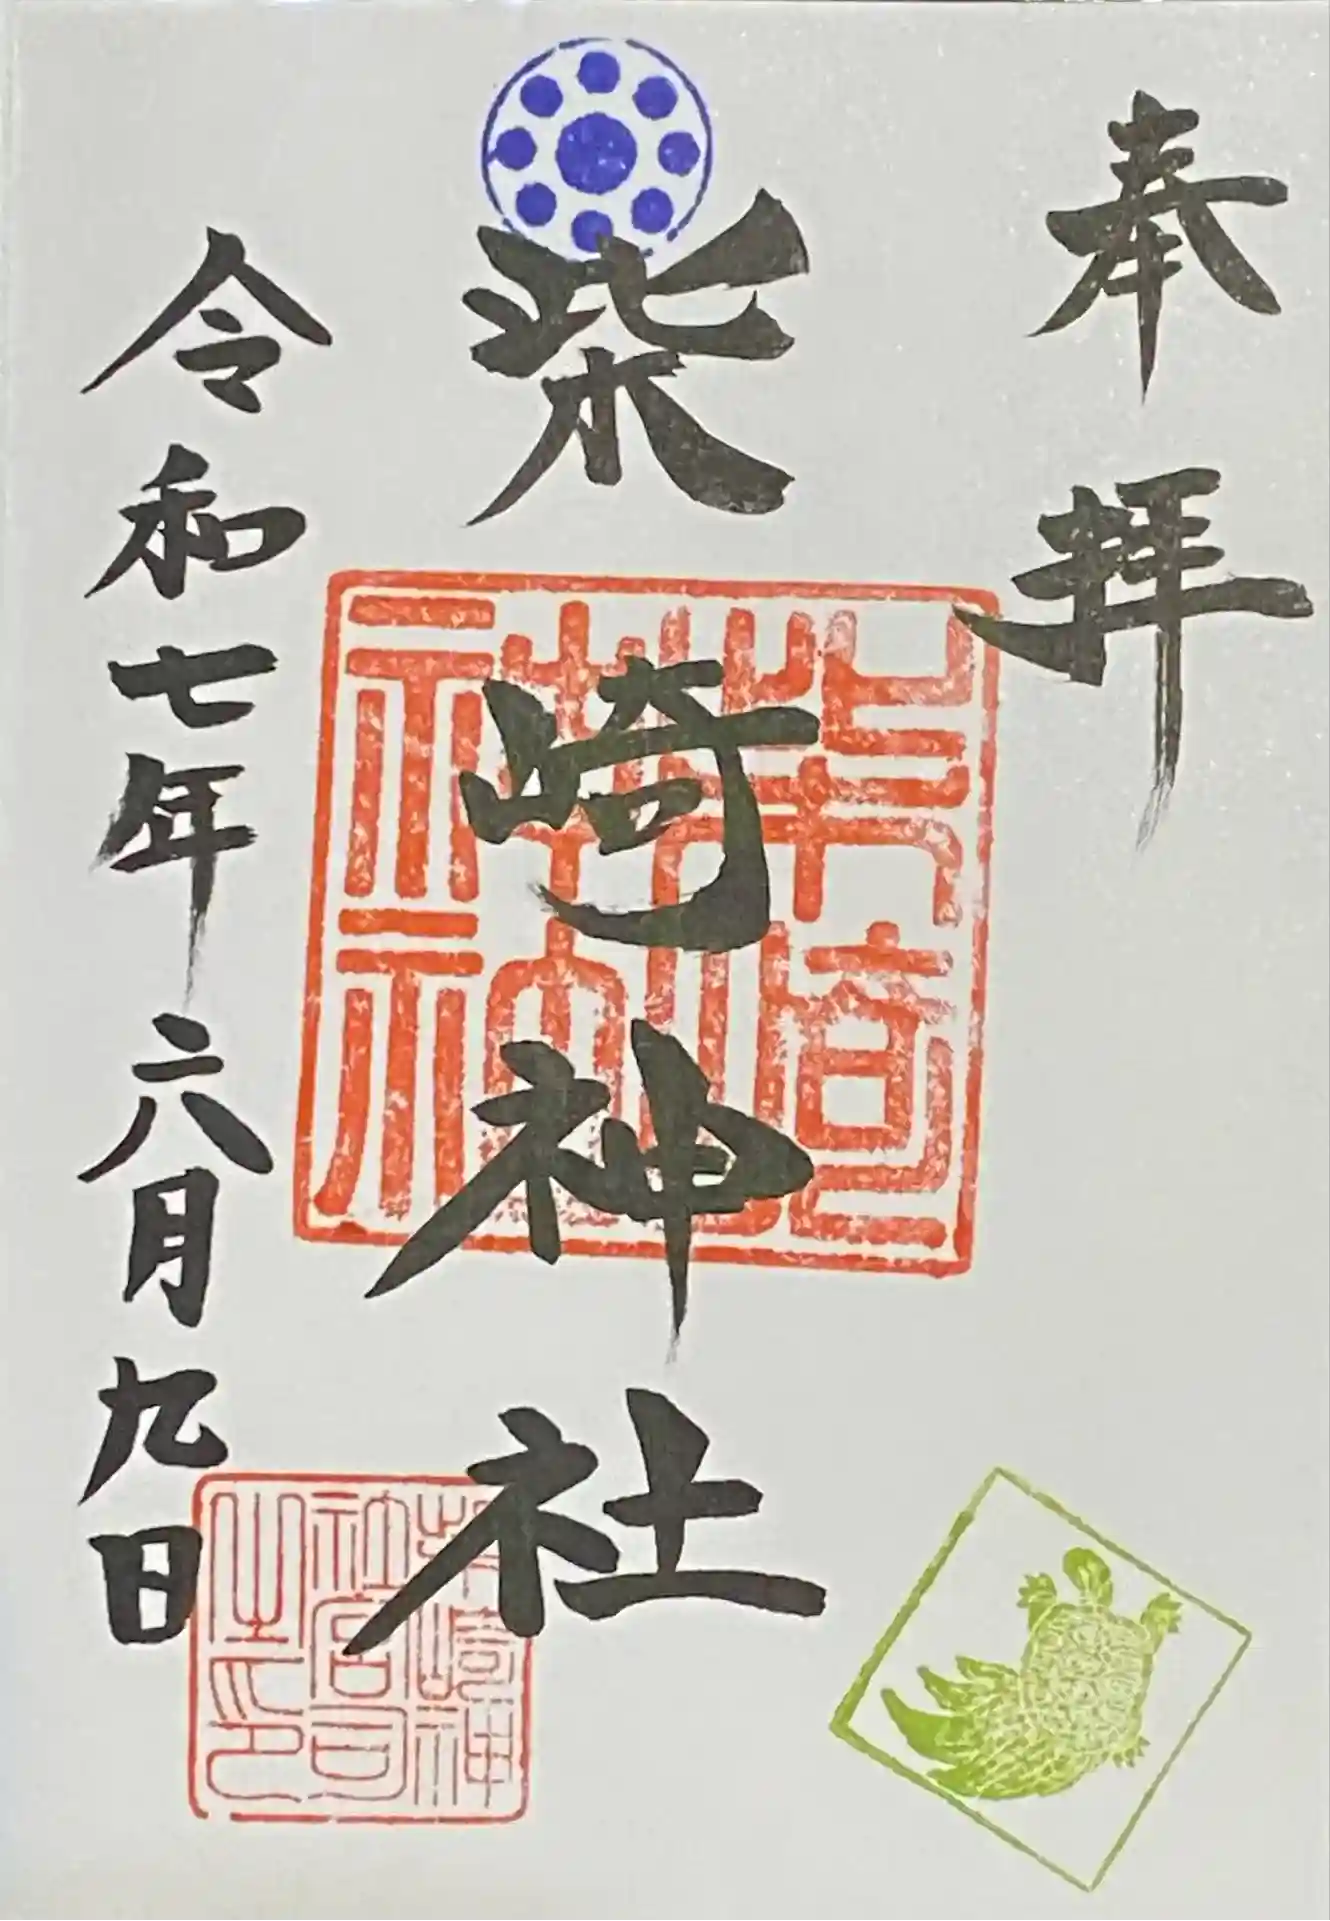 奉拝
柴崎神社
令和七年六月九日
柴崎神社
柴崎神
社宮司
之印